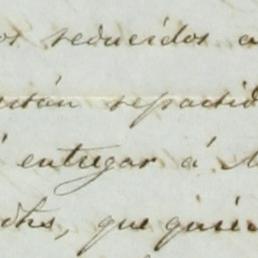 os reducidos a
están repartid
entregar á
dhs, que quie